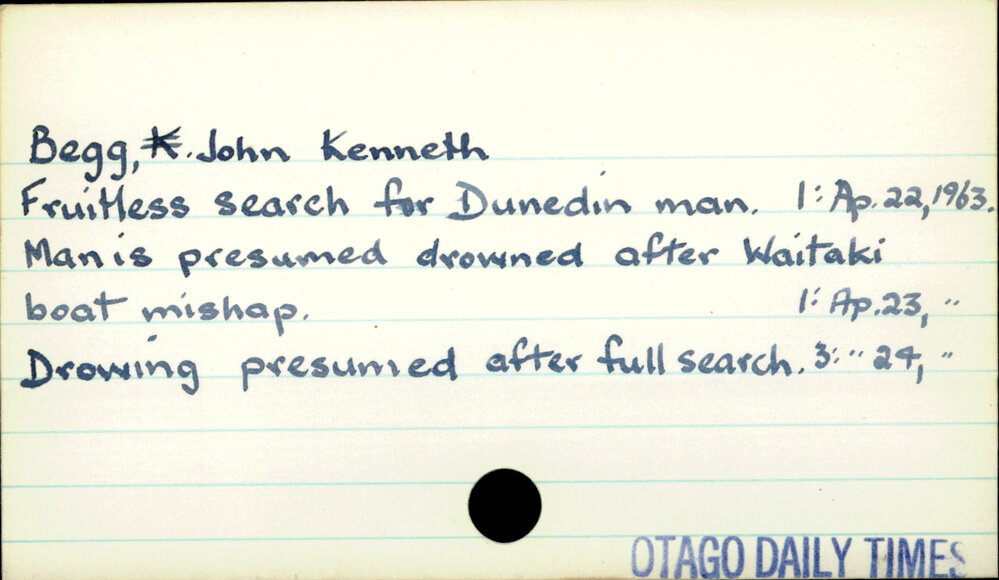 Begg, K. John Kenneth
Fruitless search for Dunedin man. 1: Ap. 22, 1963.
Man is presumed drowned after Waitaki
boat mishap. 1: Ap. 23, "
Drowing presumed after full search. 3: " 24, "
OTAGO DAILY TIMES